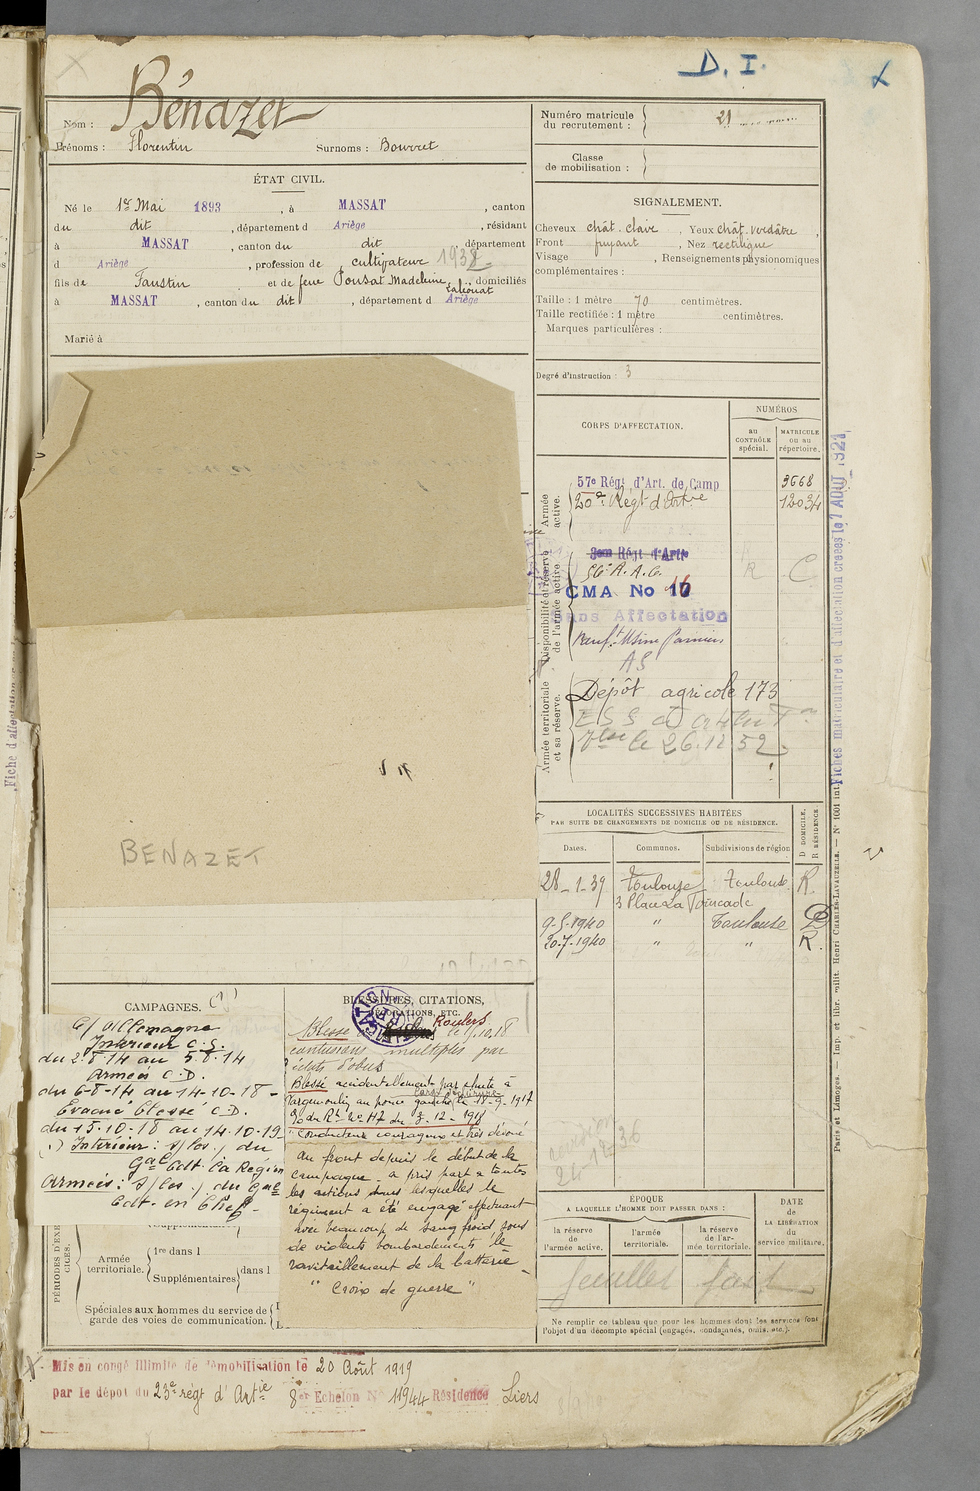 D. I.
Nom : Bénazet
Prénoms : Florentin Surnoms : Bouvret
ÉTAT CIVIL.
Né le 1er Mai 1893, à MASSAT, canton
du dit, département d Ariège, résidant
à MASSAT, canton du dit, département
d Ariège, profession de cultivateur 1932
fils de Faustin et de feue Pousat Madeleine, domiciliés
à MASSAT, canton du dit, département d Ariège
Marié à
Numéro matricule
du recrutement :
Classe
de mobilisation :
SIGNALEMENT.
Cheveux chât. clair, Yeux chât. verdâtre,
Front fuyant, Nez rectiligne
Visage , Renseignements physionomiques
complémentaires :
Taille : 1 mètre 70 centimètres.
Taille rectifiée : 1 mètre centimètres.
Marques particulières :
Degré d'instruction : 3
CORPS D'AFFECTATION.
NUMÉROS
au
CONTRÔLE
spécial.
MATRICULE
ou au
répertoire.
Armée
active.
57e Régt d'Art. de Camp 3668
20e Régt d'Artie 12034
Disponibilité et réserve
de l'armée active.
3eme Régt d'Artie
56e A.A.C.
CMA No 16
Sans Affectation
Renf.t Usine Pamiers
AS
Armée territoriale
et sa réserve.
Dépôt agricole 173
le 26.12.52
LOCALITÉS SUCCESSIVES HABITÉES
PAR SUITE DE CHANGEMENTS DE DOMICILE OU DE RÉSIDENCE.
Dates. Communes. Subdivisions de région
D DOMICILE.
R RÉSIDENCE
28-1-39 Toulouse Toulouse R.
3 Place La Tourcade
9-5-1940 " Toulouse D
20-7-1940 " " R.
BENAZET
CAMPAGNES. (1)
C/ Allemagne
Intérieur C.S.
du 2-8-14 au 5-8-14
Armées C.D.
du 6-8-14 au 14-10-18-
Evacué blessé C.D.
du 15-10-18 au 14-10-19
Intérieur : s/les j du
Gal Cdt. la Région
Armées : s/les j du Gal
Cdt. en Chef-
BLESSURES, CITATIONS,
DÉCORATIONS, ETC.
Blessé Roulers le .10.18
contusions multiples par
éclats d'obus
Blessé accidentellement par chute à
au pouce gauche le 11-9-1917
O. du R. No 117 du 3-12-1918
"Conducteur courageux et très dévoué
au front depuis le début de la
campagne, a pris part à toutes
les actions dans lesquelles le
régiment a été engagé effectuant
avec beaucoup de sang froid sous
de violents bombardements le
ravitaillement de la batterie -
" Croix de guerre "
24-12-36
PÉRIODES D'EXERCICES.
Armée
territoriale.
1re dans l
Supplémentaires
dans l
Spéciales aux hommes du service de
garde des voies de communication.
ÉPOQUE
A LAQUELLE L'HOMME DOIT PASSER DANS :
la réserve
de
l'armée active.
l'armée
territoriale.
la réserve
de l'ar-
mée territoriale.
DATE
de
LA LIBÉRATION
du
service militaire.
Ne remplir ce tableau que pour les hommes dont les services font
l'objet d'un décompte spécial (engagés, condamnés, omis, etc.).
Mis en congé illimité de démobilisation le 20 Août 1919
par le dépôt du 23e régt d'Artie 8e Echelon No 11944 Résidence Liers
Fiches matriculaire et d'affectation créées le 7 AOUT 1921
Paris et Limoges. — Imp. et libr. milit. Henri CHARLES-LAVAUZELLE. — N° 1001 int.
Fiche d'affectation